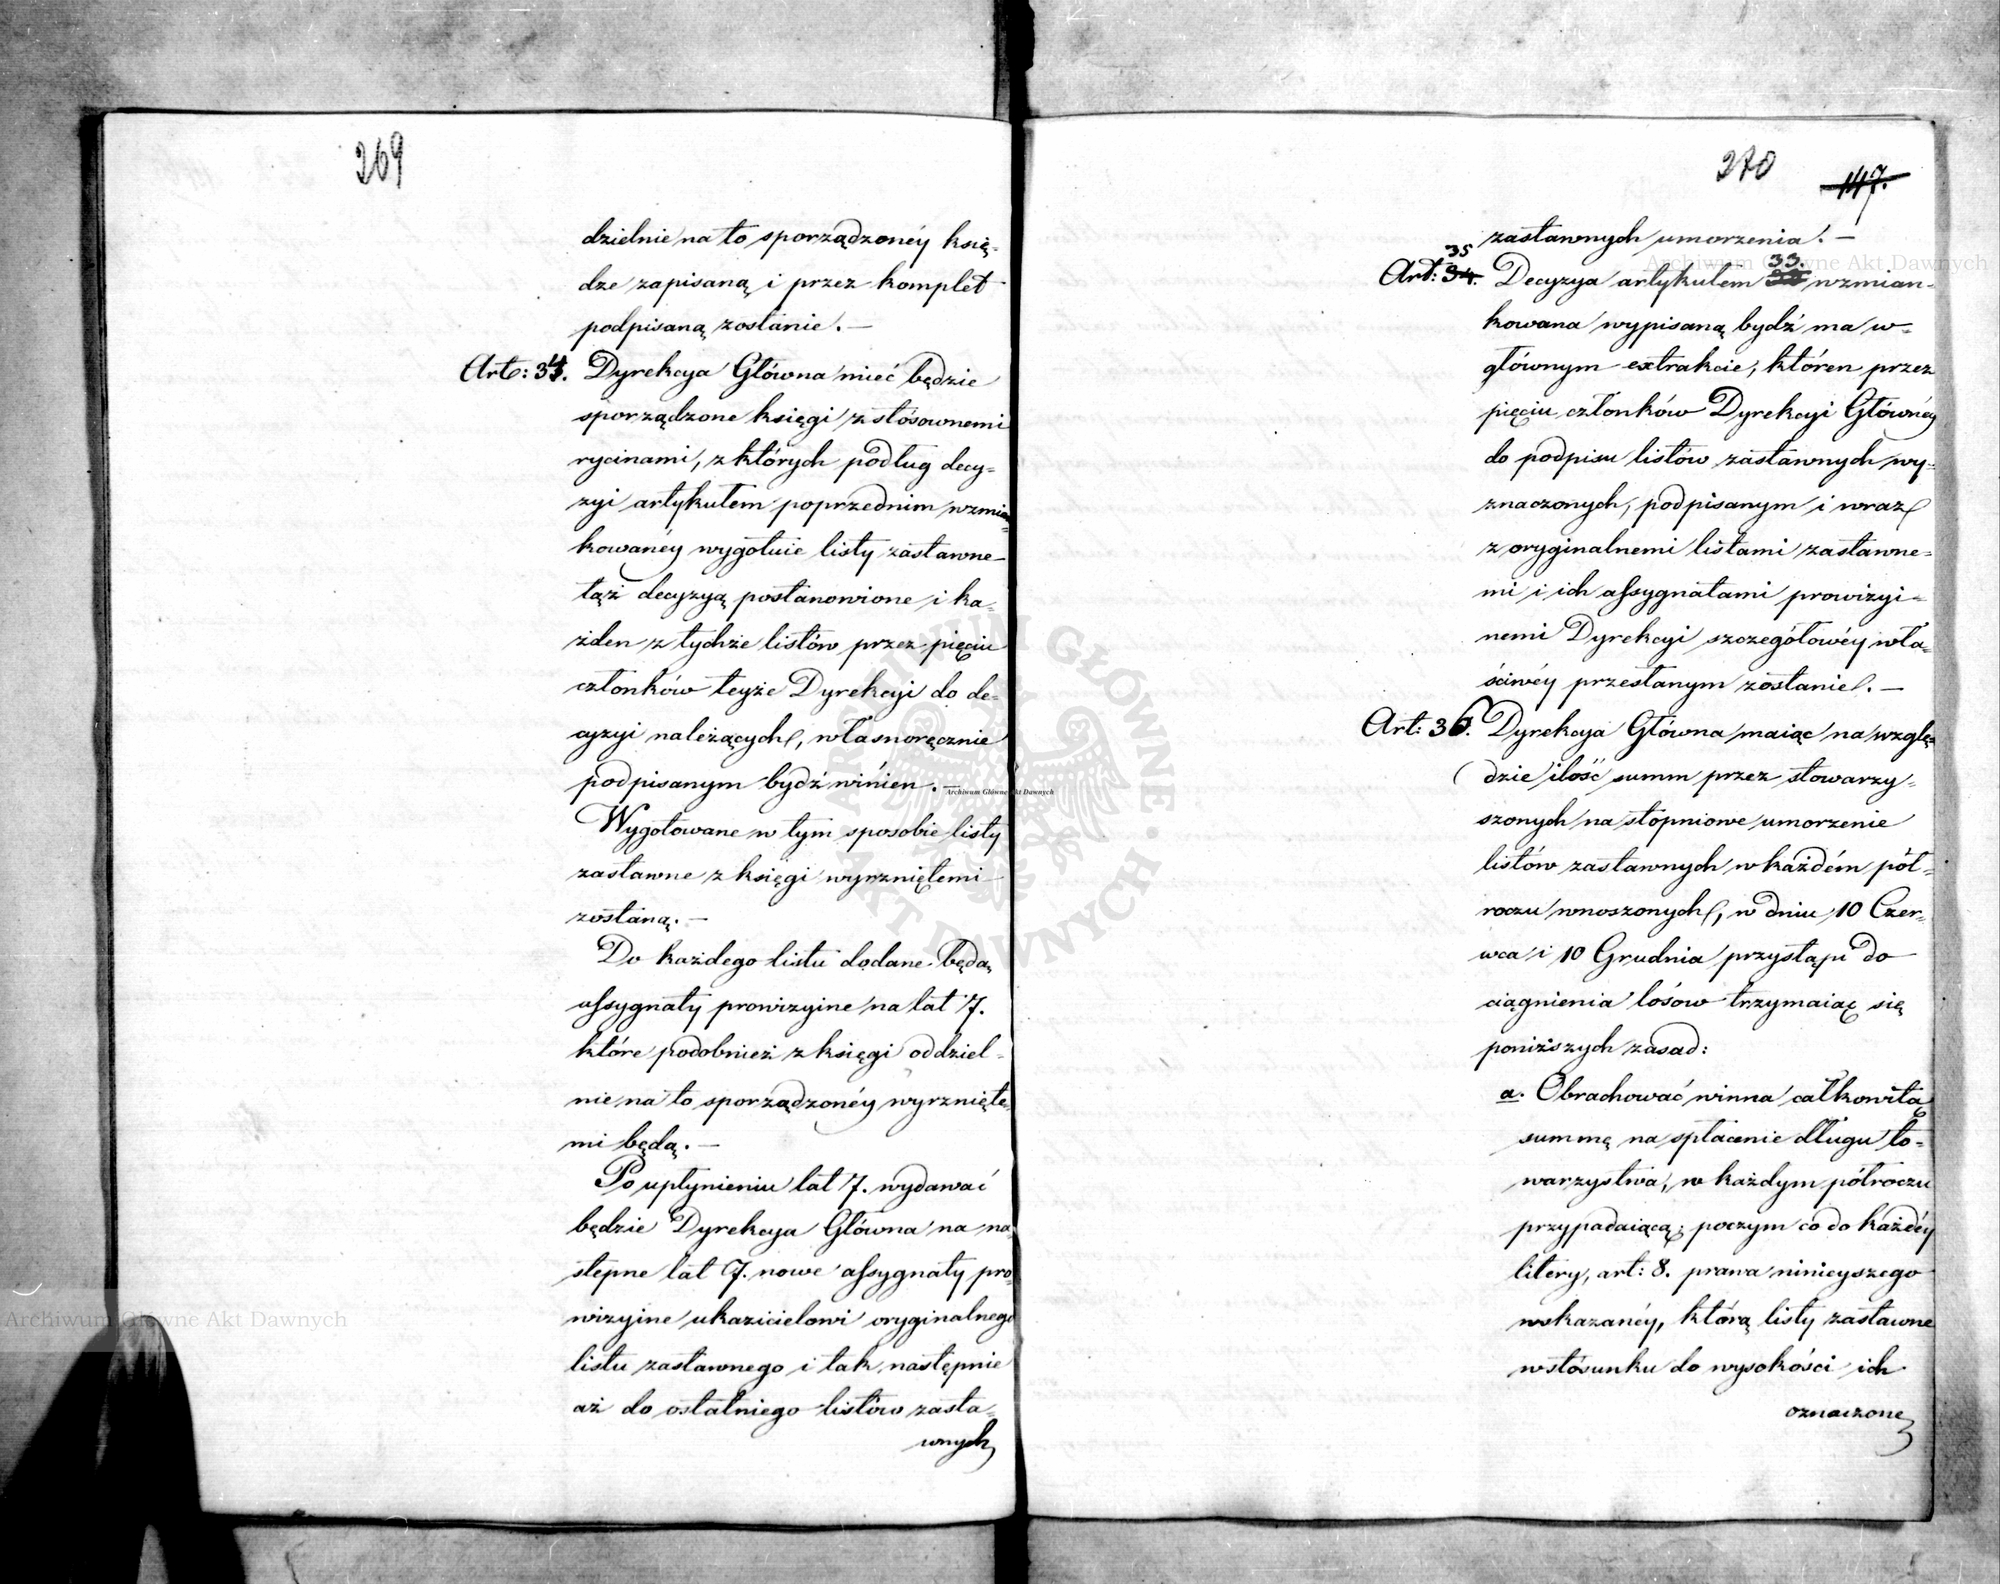 269
dzielnie na to sporządzonéy księ-
dze zapisaną i przez komplet
podpisaną zostanie. —
Art: 34. Dyrekcya Główna mieć będzie
sporządzone księgi z stósownemi
rycinami, z których podług decy-
zyi artykułem poprzednim wzmian-
kowanéy wygotuie listy zastawne
tąż decyzyą postanowione i ka-
żden z tychże listów przez pięciu
członków teyże Dyrekcyi do de-
cyzyi należących, własnoręcznie
podpisanym bydź winien. —
Wygotowane w tym sposobie listy
zastawne z księgi wyrzniętemi
zostaną. —
Do każdego listu dodane będą
assygnaty prowizyine na lat 7.
które podobnież z księgi oddziel-
nie na to sporządzonéy wyrznięte-
mi będą. —
Po upłynieniu lat 7. wydawać
będzie Dyrekcya Główna na na-
stępne lat 7. nowe assygnaty pro-
wizyine ukazicielowi oryginalnego
listu zastawnego i tak następnie
aż do ostatniego listów zasta-
wnych
270
147.
zastawnych umorzenia. —
35
Art: 34. Decyzya artykułem 33. wzmian-
kowana wypisaną bydź ma w
głównym extrakcie, któren przez
pięciu członków Dyrekcyi Głównéy
do podpisu listów zastawnych wy-
znaczonych, podpisanym i wraz
z oryginalnemi listami zastawne-
mi i ich assygnatami prowizyi-
nemi Dyrekcyi szczegółowéy wła-
ściwéy przesłanym zostanie. —
Art: 36. Dyrekcya Główna maiąc na wzglę-
dzie ilość summ przez stowarzy-
szonych na stopniowe umorzenie
listów zastawnych w każdém pół-
roczu wnoszonych, w dniu 10 Czer-
wca i 10 Grudnia przystąpi do
ciągnienia losów trzymaiąc się
poniższych zasad:
a. Obrachować winna całkowitą
summę na spłacenie długu to-
warzystwa, w każdym półroczu
przypadaiącą; poczym co do każdéy
litery, art: 8. prawa ninieyszego
wskazanéy, którą listy zastawne
w stósunku do wysokości ich
oznaczone
Archiwum Główne Akt Dawnych
Archiwum Główne Akt Dawnych
Archiwum Główne Akt Dawnych
ARCHIWUM GŁÓWNE · AKT DAWNYCH ·